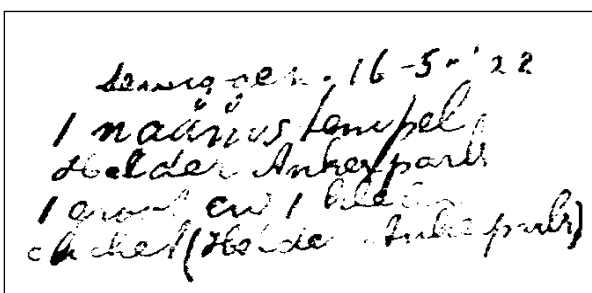 terug gen. 16-5-'22
1 naamstempel
Helder Ankerpark
1 groot en 1 klein
cachet (Helder Ankerpark)